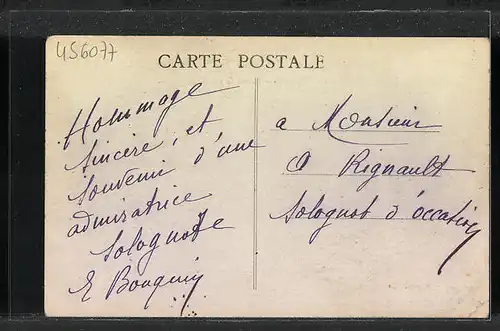 456077
CARTE POSTALE
Hommage
sincère, et
souvenir d'une
admiratrice
Solognote
E Bouquin
a Monsieur
O Rignault
Solognot d'occation